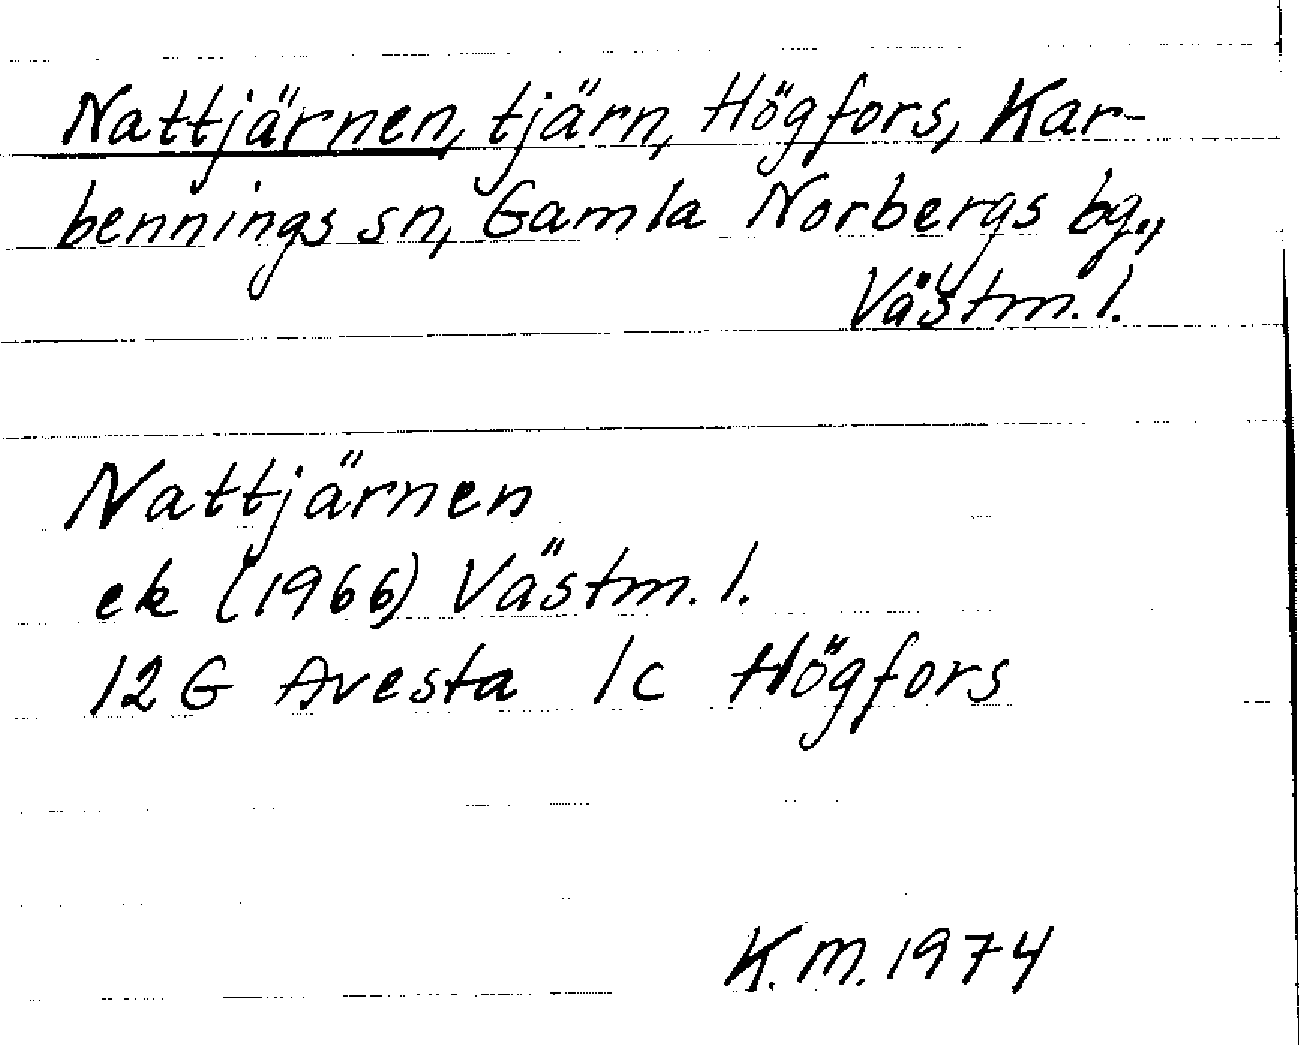 Nattjärnen, tjärn, Högfors, Kar-
bennings sn, Gamla Norbergs bg.,
Västm. l.
Nattjärnen
ek (1966) Västm. l.
12 G Avesta 1c Högfors
K.M. 1974